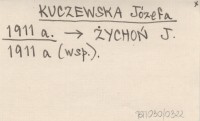 KUCZEWSKA Józefa
1911 a. → ŻYCHOŃ J.
1911 a (wsp.).
BJ1030/0322